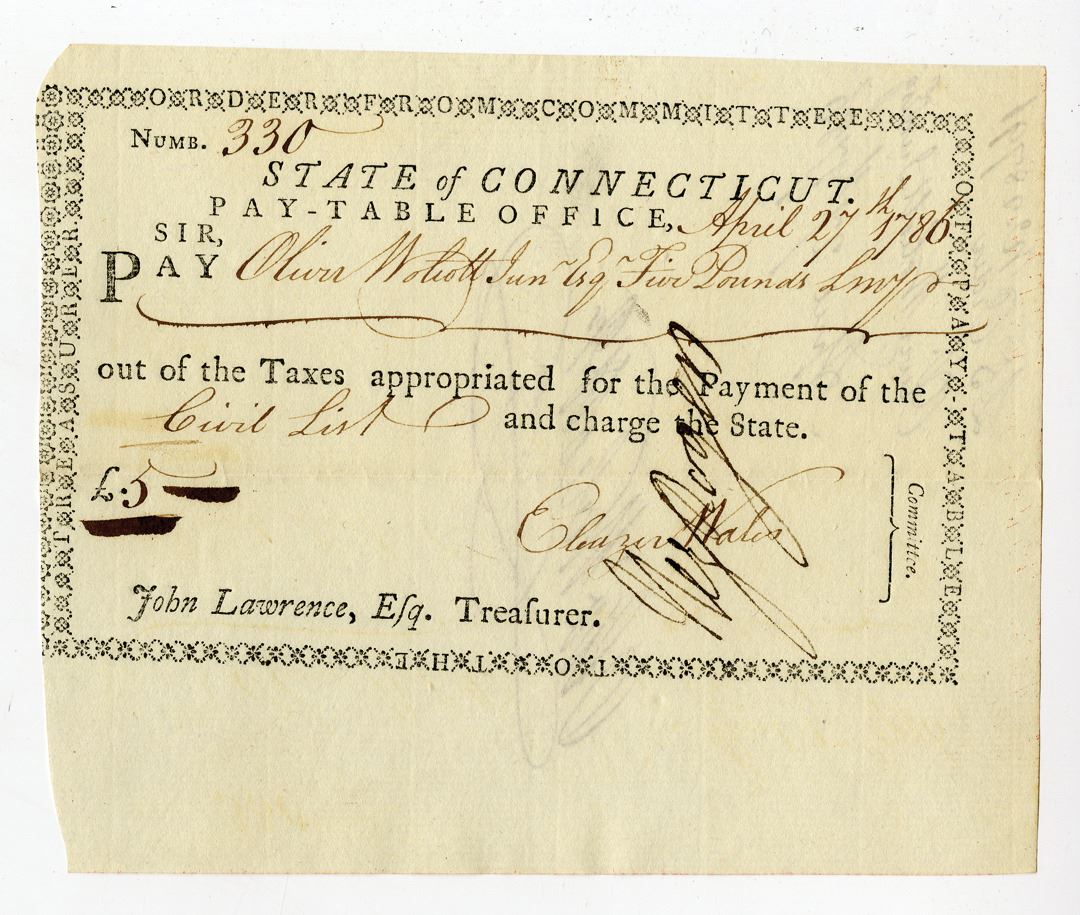 ORDER FROM COMMITTEE
OF PAY-TABLE
TO THE
TREASURER.
NUMB. 330
STATE of CONNECTICUT.
PAY-TABLE OFFICE, April 27th 1786
SIR,
PAY Oliver Wolcott Junr Esqr Five Pounds Lmy
out of the Taxes appropriated for the Payment of the
Civil List and charge the State.
£:5
Eleazer Wales
Committee.
John Lawrence, Eſq. Treaſurer.